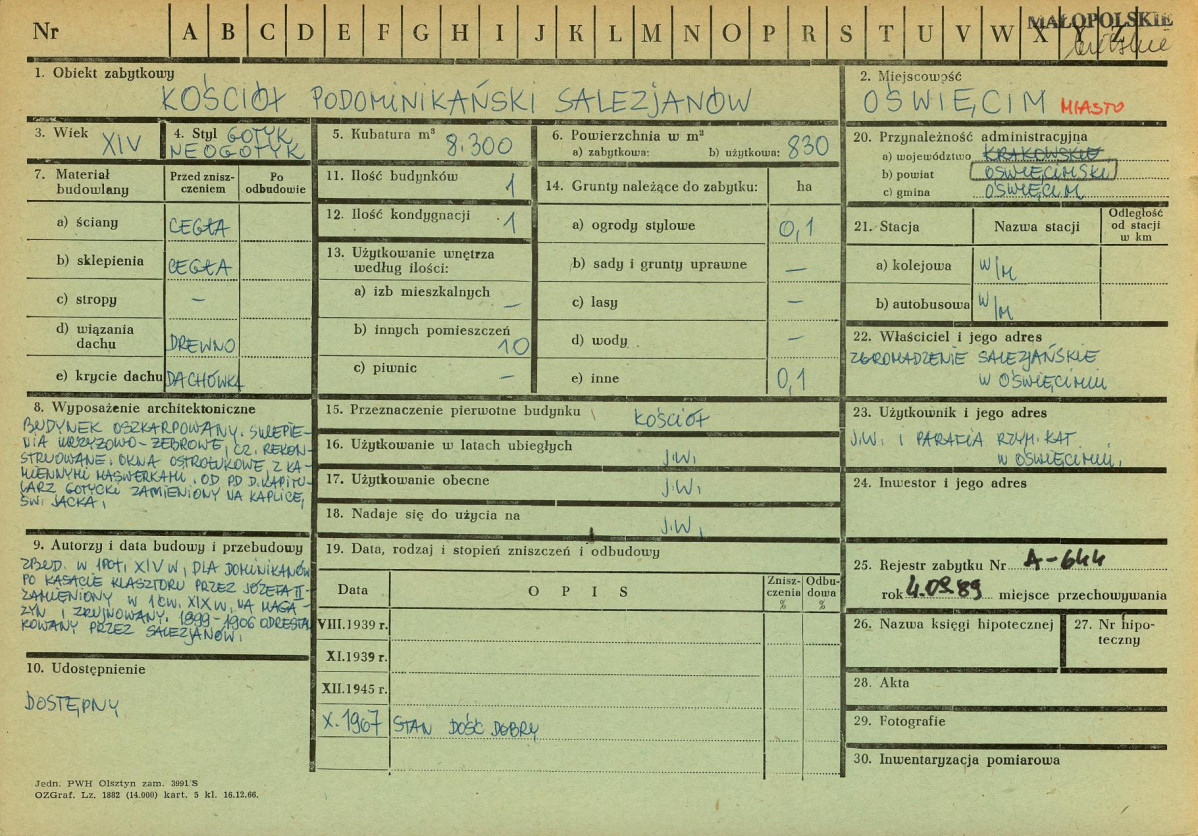 Nr A B C D E F G H I J K L M N O P R S T U V W X Y Z
MAŁOPOLSKIE
bielskie
1. Obiekt zabytkowy
KOŚCIÓŁ PODOMINIKAŃSKI SALEZJANÓW
2. Miejscowość
OŚWIĘCIM MIASTO
3. Wiek
XIV
4. Styl GOTYK
NEOGOTYK
5. Kubatura m³
8.300
6. Powierzchnia w m²
a) zabytkowa: b) użytkowa: 830
7. Materiał budowlany
Przed zniszczeniem
Po odbudowie
a) ściany CEGŁA
b) sklepienia CEGŁA
c) stropy –
d) wiązania dachu DREWNO
e) krycie dachu DACHÓWKA
11. Ilość budynków 1
12. Ilość kondygnacji 1
13. Użytkowanie wnętrza
według ilości:
a) izb mieszkalnych –
b) innych pomieszczeń
10
c) piwnic –
14. Grunty należące do zabytku: ha
a) ogrody stylowe 0,1
b) sady i grunty uprawne –
c) lasy –
d) wody –
e) inne 0,1
20. Przynależność administracyjna
a) województwo KRAKOWSKIE
b) powiat OŚWIĘCIMSKI
c) gmina OŚWIĘCIM
21. Stacja Nazwa stacji
Odległość
od stacji
w km
a) kolejowa W/M
b) autobusowa W/M
22. Właściciel i jego adres
ZGROMADZENIE SALEZJAŃSKIE
W OŚWIĘCIMIU
8. Wyposażenie architektoniczne
BUDYNEK OSZKARPOWANY. SKLEPIE-
NIA KRZYŻOWO-ŻEBROWE, CZ. REKON-
STRUOWANE. OKNA OSTROŁUKOWE, Z KA-
MIENNYMI MASWERKAMI. OD PD D. KAPITU-
LARZ GOTYCKI ZAMIENIONY NA KAPLICĘ
ŚW. JACKA.
15. Przeznaczenie pierwotne budynku KOŚCIÓŁ
16. Użytkowanie w latach ubiegłych J.W.
17. Użytkowanie obecne J.W.
18. Nadaje się do użycia na J.W.
23. Użytkownik i jego adres
J.W. I PARAFIA RZYM. KAT.
W OŚWIĘCIMIU.
24. Inwestor i jego adres
9. Autorzy i data budowy i przebudowy
ZBUD. W 1 POŁ. XIV W. DLA DOMINIKANÓW
PO KASACIE KLASZTORU PRZEZ JÓZEFA II
ZAMIENIONY W 1 ĆW. XIX W. NA MAGA-
ZYN I ZRUJNOWANY. 1899-1906 ODRESTAU
ROWANY PRZEZ SALEZJANÓW.
10. Udostępnienie
DOSTĘPNY
19. Data, rodzaj i stopień zniszczeń i odbudowy
Data O P I S
Znisz-
czenia
%
Odbu-
dowa
%
VIII.1939 r.
XI.1939 r.
XII.1945 r.
X.1967 STAN DOŚĆ DOBRY
25. Rejestr zabytku Nr A-644
rok 4.09.89 miejsce przechowywania
26. Nazwa księgi hipotecznej
27. Nr hipo-
teczny
28. Akta
29. Fotografie
30. Inwentaryzacja pomiarowa
Jedn. PWH Olsztyn zam. 3991/S
OZGraf. Lz. 1882 (14.000) kart. 5 kl. 16.12.66.